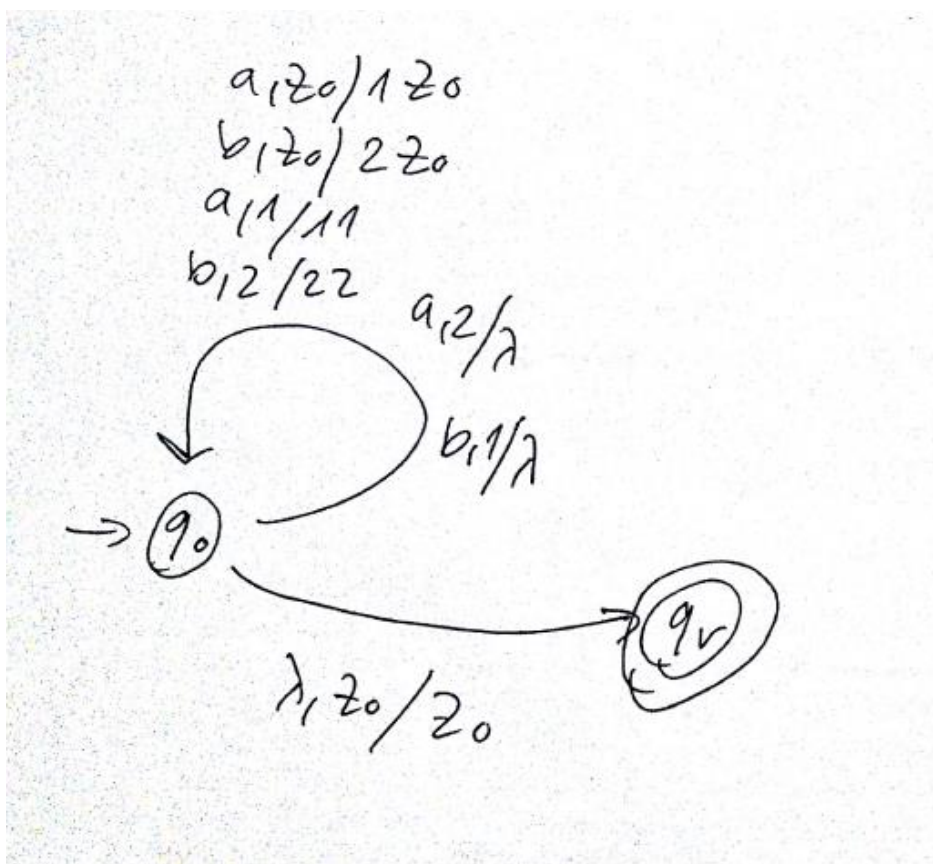 a,z0/1z0
b,z0/2z0
a,1/11
b,2/22
a,2/λ
b,1/λ
→ q0
qr
λ,z0/z0